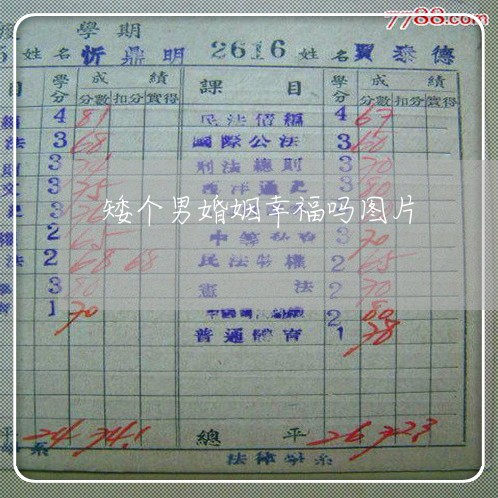 7788.com
學期
姓名 忻鼎明 2616 姓名 賈泰德
目 學分 成績 課目 學分 成績
分數 扣分 實得 分數 扣分 實得
4 81 民法債編 4 67
法 3 68 國際公法 3 60
3 刑法總則 3 70
3 75 西洋通史 3 80
3
矮个男婚姻幸福吗图片
2 65 3 70
法 2 68 68 民法物權 2 65
3 80 憲法 2 70
1 70 2 80
普通體育 1 78
平 24 74.1 總平 26 72.3
系 法律學系